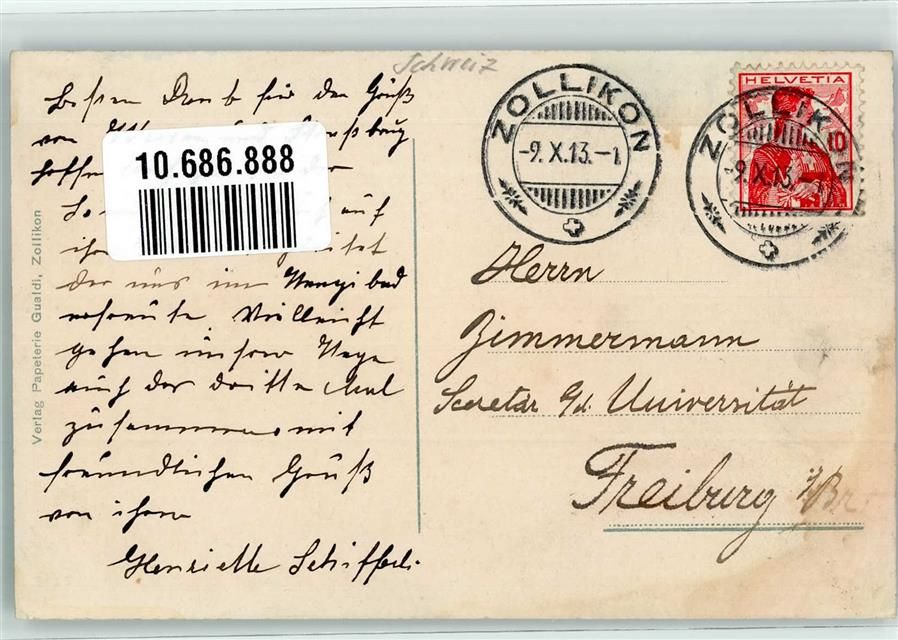 Schweiz
Besten Dank für den Gruß
von
hoffen
auf
der uns im Wengibad
erfreute Vielleicht
gehen unsere Wege
auch das dritte Mal
zusammen mit
freundlichen Gruß
von ihrer
Henriette Schifferli
10.686.888
Verlag Papeterie Gualdi, Zollikon
ZOLLIKON
-9.X.13.-1
HELVETIA
10
ZOLLIKON
-9.X.13.-1
Herrn
Zimmermann
Secretär a/d. Universität
Freiburg i/Br